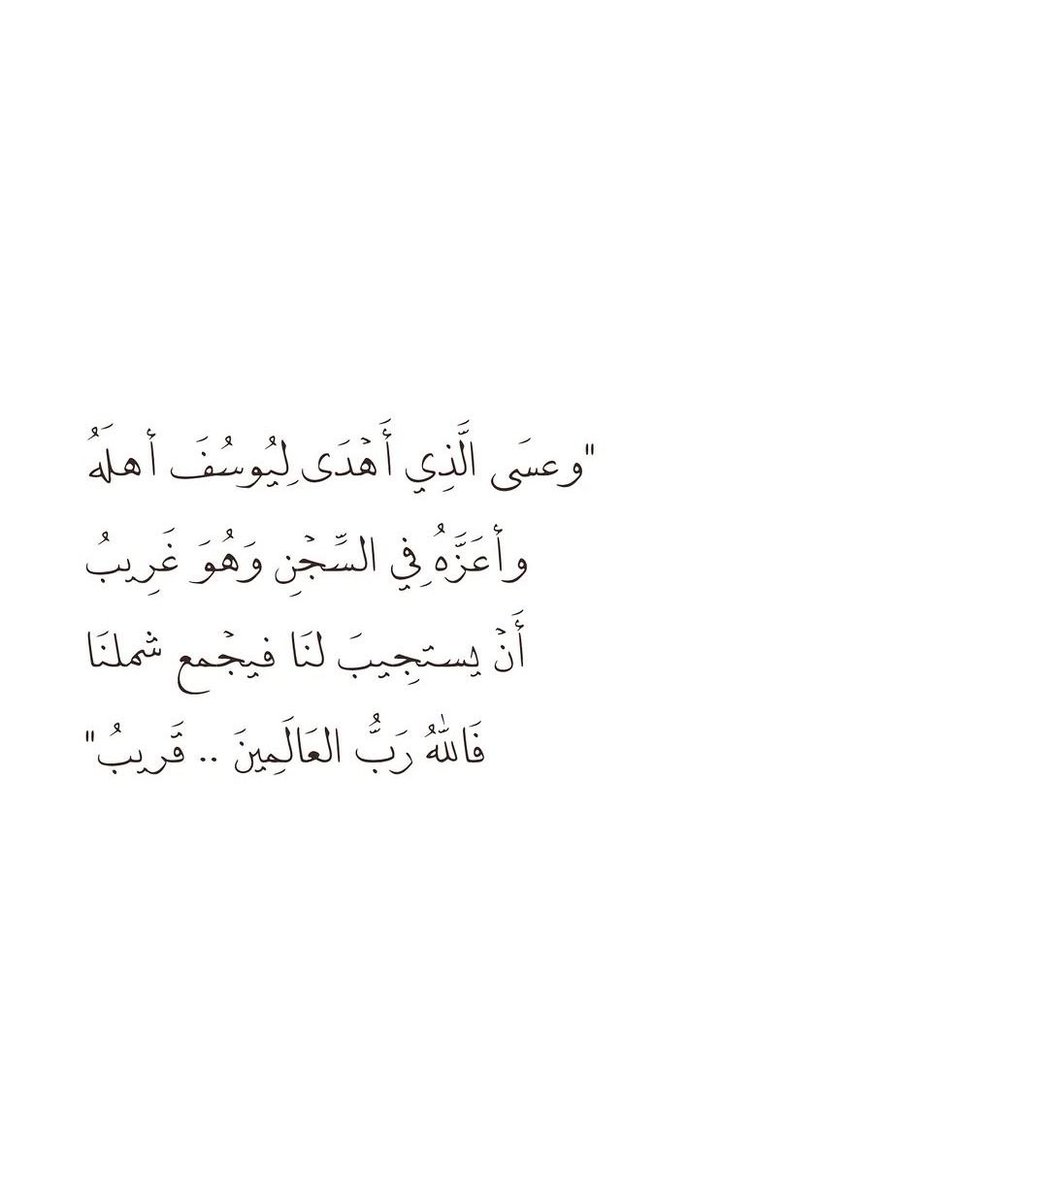 "وعسَى الَّذِي أَهْدَى لِيُوسُفَ أهلَهُ
وأعَزَّهُ فِي السِّجْنِ وَهُوَ غَرِيبُ
أَنْ يستجِيبَ لنَا فيجْمع شملنَا
فَاللهُ رَبُّ العَالَمِينَ .. قَريبُ"